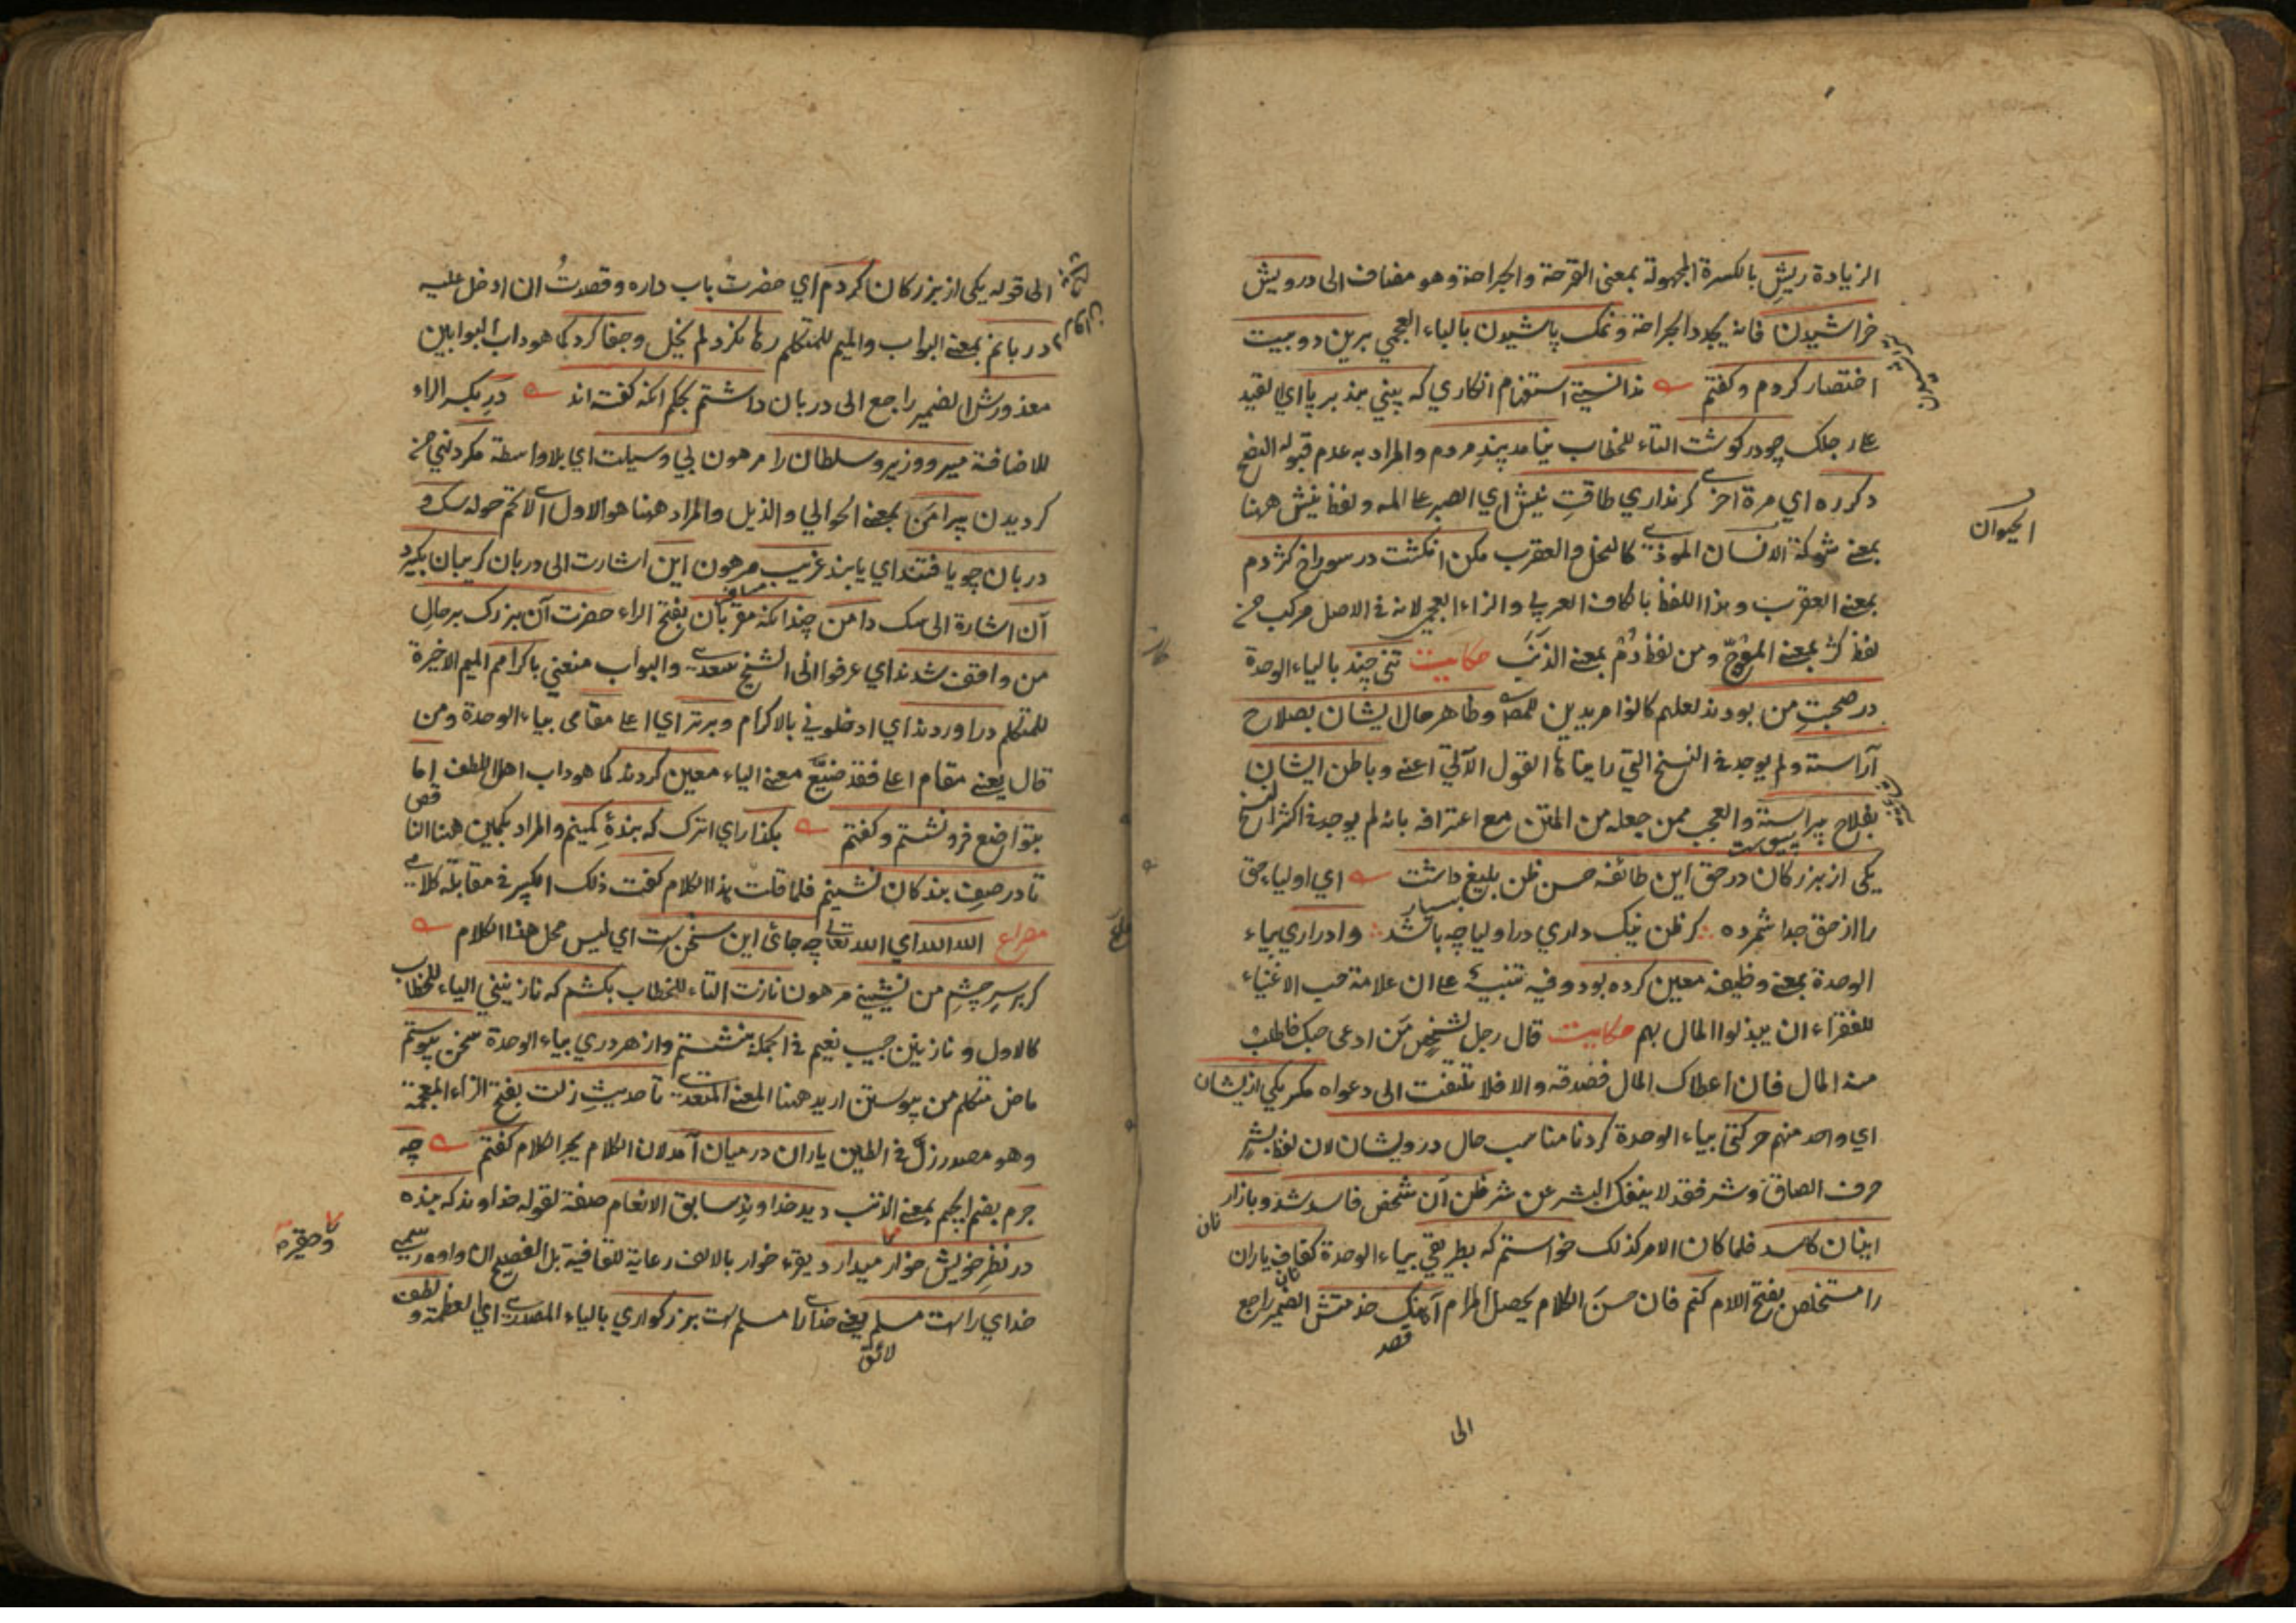 الزيادة ريش بالكسرة المجهولة بمعنى القرحة والجراحة وهو مضاف الى درويش
خراشيدن فانه يجدد الجراحة ونمك پاشيدن بالباء العجمي برين دو بيت
اختصار كردم وكفتم ندانستي استفهام انكاري كه بيني بند بر پا اي القيد
على رجلك چو در كوشت التاء للخطاب نيامد پند مردم والمراد به عدم قبوله النصح
دكرره اي مرة اخرى كر نداري طاقت نيش اي الصبر على المه ولفظ نيش ههنا
بمعنى شوكة الانسان الموذي كالنحل والعقرب مكن انكشت در سوراخ كژدم
بمعنى العقرب وهذا اللفظ بالكاف العربي والزاء العجمي لانه في الاصل مركب من
لفظ كژ بمعنى المعوج ومن لفظ دم بمعنى الذنب حكايت تني چند بالياء الوحدة
در صحبت من بودند لعلهم كانوا مريدين للمص وظاهر حال ايشان بصلاح
آراسته ولم يوجد في النسخ التي رايناها القول الآتي اعني وباطن ايشان
بفلاح پيراسته والعجب ممن جعله من المتن مع اعترافه بانه لم يوجد في اكثر النسخ
يكى از بزركان در حق اين طائفه حسن ظن بليغ داشت اي اولياء حق
را از حق جدا شمرده كر ظن نيك داري در اوليا چه باشد وادراري بياء
الوحدة بمعنى وظيفه معين كرده بود وفيه تنبيه على ان علامة حب الاغنياء
للفقراء ان يبذلوا المال بهم حكايت قال رجل لشخص من ادعى حبك فاطلب
منه المال فان اعطاك المال فصدقه والا فلا تلتفت الى دعواه مكر يكي از ايشان
اي واحد منهم حركتي بياء الوحدة كرد نامناسب حال درويشان لان لفظ بشر
حرف الصاق وشر فقد لا ينفك البشر عن شر ظن آن شخص فاسد شد وبازار
اينان كاسد فلما كان الامر كذلك خواستم كه بطريقي بياء الوحدة كفاف ياران
را مستخلص بفتح اللام كنم فان حسن الكلام يحصل المرام آهنك خدمتش الضمير راجع
الى
الحيوان
الى قوله يكى از بزركان كردم اي حضرت باب داره وقصدت ان ادخل عليه
دربانم بمعنى البواب والميم للمتكلم رها نكرد لم يخل وجفا كرد كما هو داب البوابين
معذورش الضمير راجع الى دربان داشتم بحكم انكه كفته اند در بكسر الراء
للاضافة مير ووزير وسلطان را مرهون بي وسيلت اي بلا واسطة مكرد نهي من
كرديدن پيرامن بمعنى الحوالي والذيل والمراد ههنا هو الاول اي لا تحم حوله سك و
دربان چو يافتند اي يابند غريب مرهون اين اشارت الى دربان كريبان بكيرد
آن اشارة الى سك دامن چندانكه مقربان بفتح الراء حضرت آن بزرك بر حال
من واقف شدند اي عرفوا اني الشيخ سعدي والبواب منعني باكرامم الميم الاخيرة
للمتكلم در اوردند اي ادخلوني بالاكرام وبرتر اي اعلى مقامى بياء الوحدة ومن
قال يعني مقام اعلى فقد ضيع معنى الياء معين كردند كما هو داب اهل اللطف اما
بتواضع فرو نشستم وكفتم بكذار اي اترك كه بندۀ كمينم والمراد بكمين ههنا الناقص
تا در صف بندكان نشينم فلما قلت هذا الكلام كفت ذلك الكبير في مقابلة كلامي
مصراع الله الله اي الله تعالى چه جائ اين سخن ست اي ليس محل هذا الكلام
كر بر سر چشم من نشيني مرهون نازت التاء للخطاب بكشم كه نازنيني الياء للخطاب
كالاول ونازنين حبيب نعيم في الجملة بنشستم واز هر دري بياء الوحدة سخن پيوستم
ماض متكلم من پيوستن اريد ههنا المعنى المتعدي تا حديث زلت بفتح الزاء المعجمة
وهو مصدر زل في الطين ياران در ميان آمد لان الكلام يجر الكلام كفتم چه
جرم بضم الجيم بمعنى الذنب ديد خداوند سابق الانعام صفة لقوله خداوند كه بنده
در نظر خويش خوار ميدارد يقرء خوار بالالف رعاية للقافية بل الفصيح ان واوه رسمي
خداي راست مسلم يعني خدايرا مسلم است بزركواري بالياء المصدري اي العظمة و لطف
لائق
وحقيره